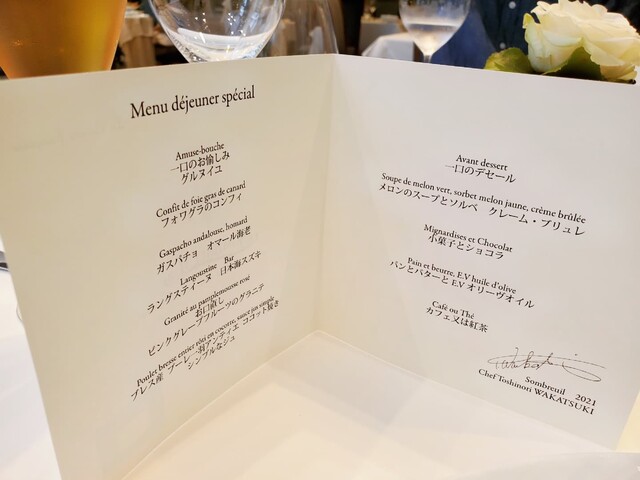 Menu déjeuner spécial
Amuse-bouche
一口のお愉しみ
グルヌイユ
Confit de foie gras de canard
フォワグラのコンフィ
Gaspacho andalouse, homard
ガスパチョ オマール海老
Langoustine Bar
ラングスティーヌ 日本海スズキ
Granité au pamplemousse rosé
お口直し
ピンクグレープフルーツのグラニテ
Poulet bresse entier rôti en cocotte, sauce jus simple
ブレス産 プーレ 一羽アンティエ ココット焼き
シンプルなジュ
Avant dessert
一口のデセール
Soupe de melon vert, sorbet melon jaune, crème brûlée
メロンのスープとソルベ クレーム・ブリュレ
Mignardises et Chocolat
小菓子とショコラ
Pain et beurre, E.V huile d'olive
パンとバターと E.V オリーヴオイル
Café ou Thé
カフェ又は紅茶
Sombreuil 2021
Chef Toshinori WAKATSUKI